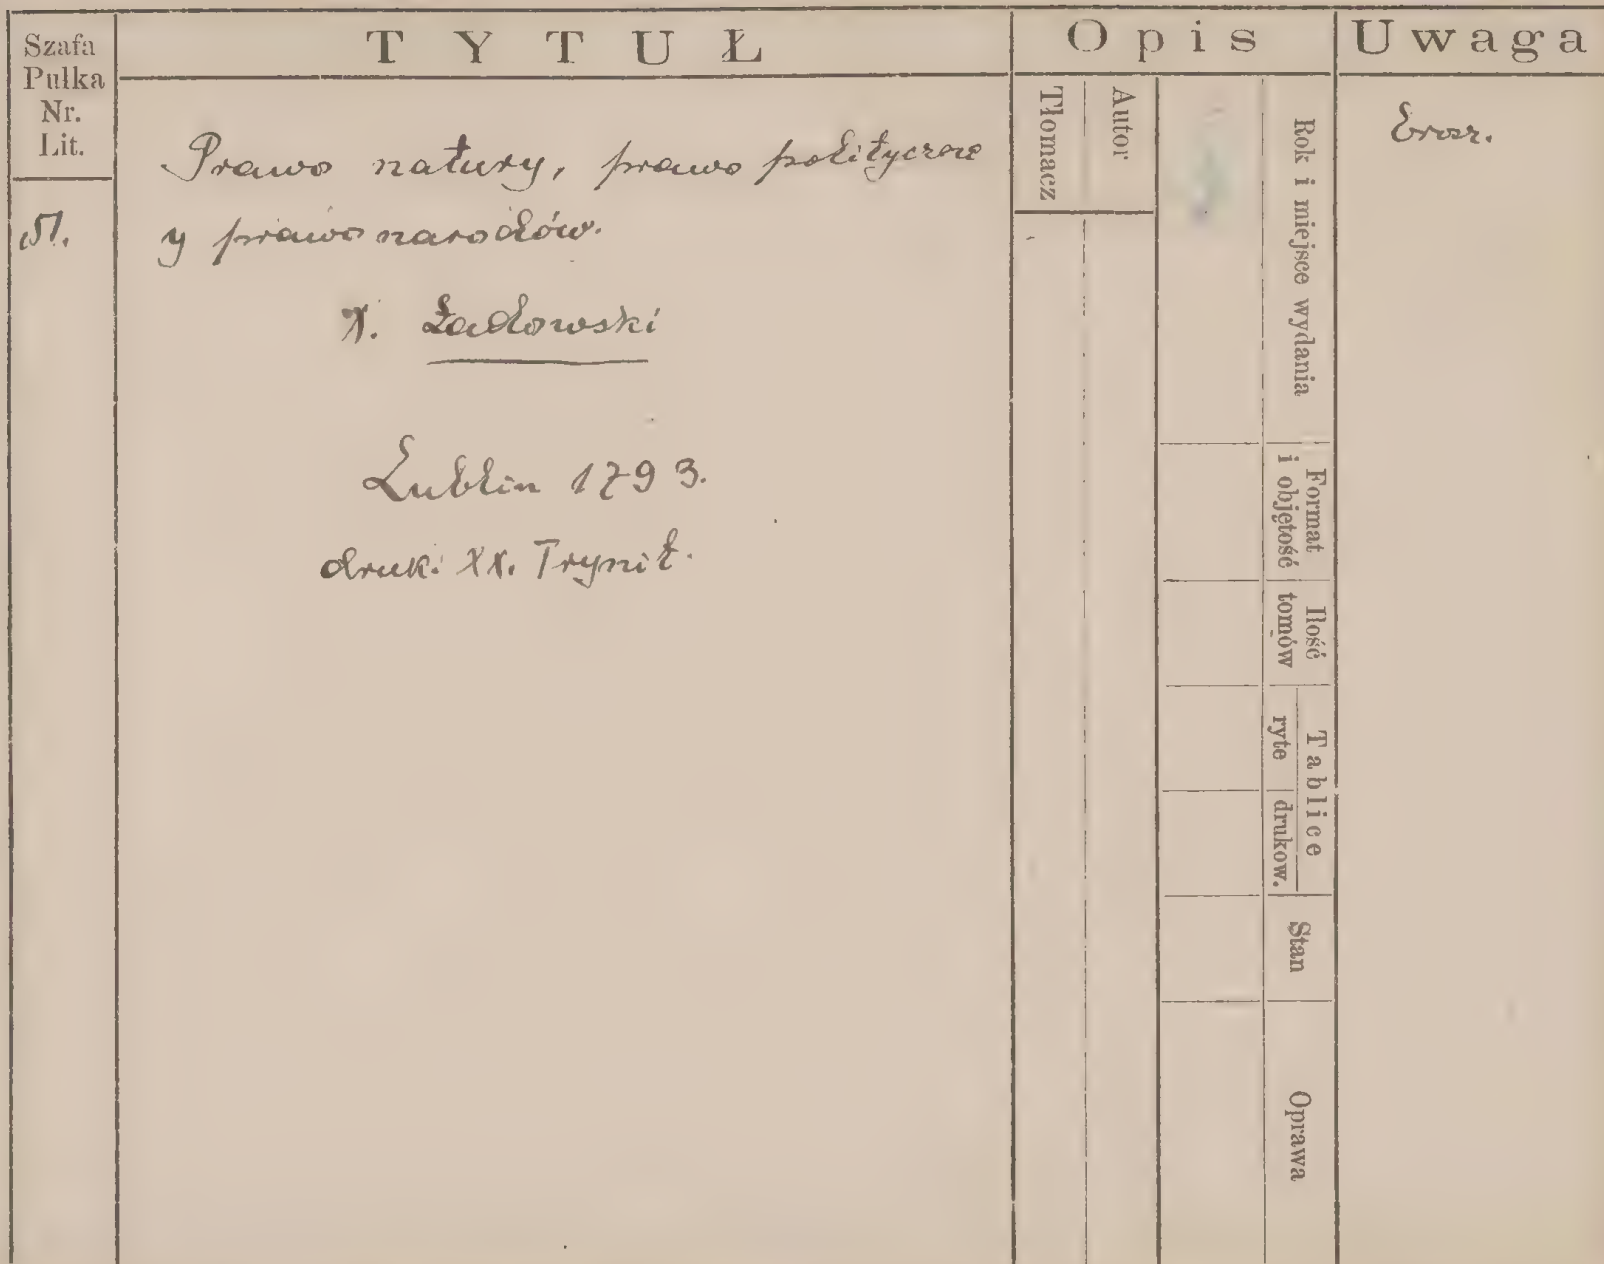 Szafa
Pułka
Nr.
Lit.
TYTUŁ
Opis
Uwaga
Tłomacz
Autor
Rok i miejsce wydania
Format
i objętość
Ilość
tomów
Tablice
ryte
drukow.
Stan
Oprawa
51.
Prawo natury, prawo polityczne
y prawo narodów.
X. Ładowski
Lublin 1793.
druk: XX. Trynit.